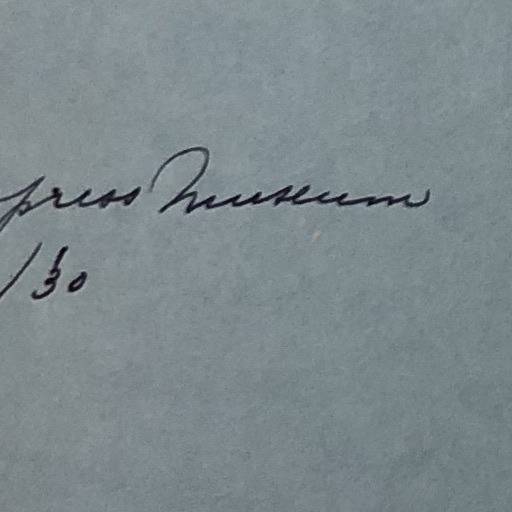 press Museum
/30